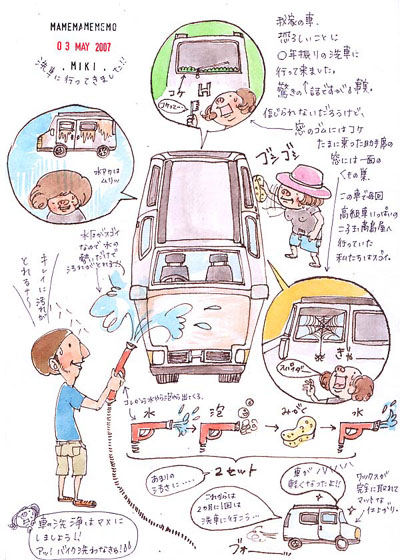 MAMEMAMEMEMO
03 MAY 2007
.MIKI.
洗車に行ってきました!!
我家の車.
恐ろしいことに
〇年振りの洗車に
行って来ました。
驚きの
信じられないだろうけど、
窓のゴムにはコケ
たまに乗った助手席の
窓には一面の
くもの巣.
この車で毎回
高級車いっぱいの
二子玉高島屋へ
行っていた
私たちはスゴイ。
コケ
ゴシゴシ
水アカは
ムリ
水圧がスゴイ
なので水の
勢いだけで
汚れがとれそう
キレイに汚れが
とれるナ〜
ぎゃー
↑コレから水やら泡やら出てくる.
水
泡
みがく
水
2セット
あまりの
これからは
2ヵ月に1回は
洗車に行こう…
車が
軽くなったよ!!
ワックスが
完全に取れて
マットな
車の洗浄はマメに
しましょう!!
アッ!バイク洗わなきゃ!!